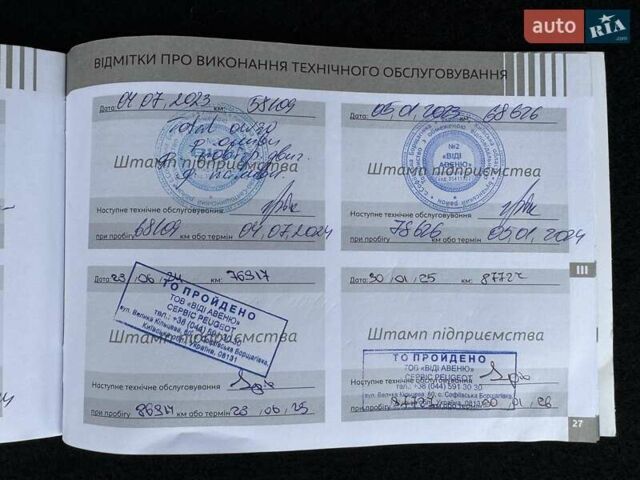 auto RIA .com
ВІДМІТКИ ПРО ВИКОНАННЯ ТЕХНІЧНОГО ОБСЛУГОВУВАННЯ
Дата: 04.07.2023 км: 58109
Штамп підприємства
Наступне технічне обслуговування
при пробігу 68109 км або термін 04.07.2024
Дата: 05.01.2023 км: 68626
№2
«ВІДІ
АВЕНЮ»
Штамп підприємства
Наступне технічне обслуговування
при пробігу 78626 км або термін 05.01.2024
Дата: 23.06.24 км: 76917
ТО ПРОЙДЕНО
ТОВ «ВІДІ АВЕНЮ»
СЕРВІС PEUGEOT
тел.: +38 (044) 591 30 30
вул. Велика Кільцева, 60, с. Софіївська Борщагівка,
Київська обл., Україна, 08131
Штамп підприємства
Наступне технічне обслуговування
при пробігу 86917 км або термін 23.06.25
Дата: 30.01.25 км: 87722
Штамп підприємства
ТО ПРОЙДЕНО
ТОВ «ВІДІ АВЕНЮ»
СЕРВІС PEUGEOT
тел.: +38 (044) 591 30 30
вул. Велика Кільцева, 60, с. Софіївська Борщагівка,
Наступне технічне
при пробігу 30.01.26
III
27